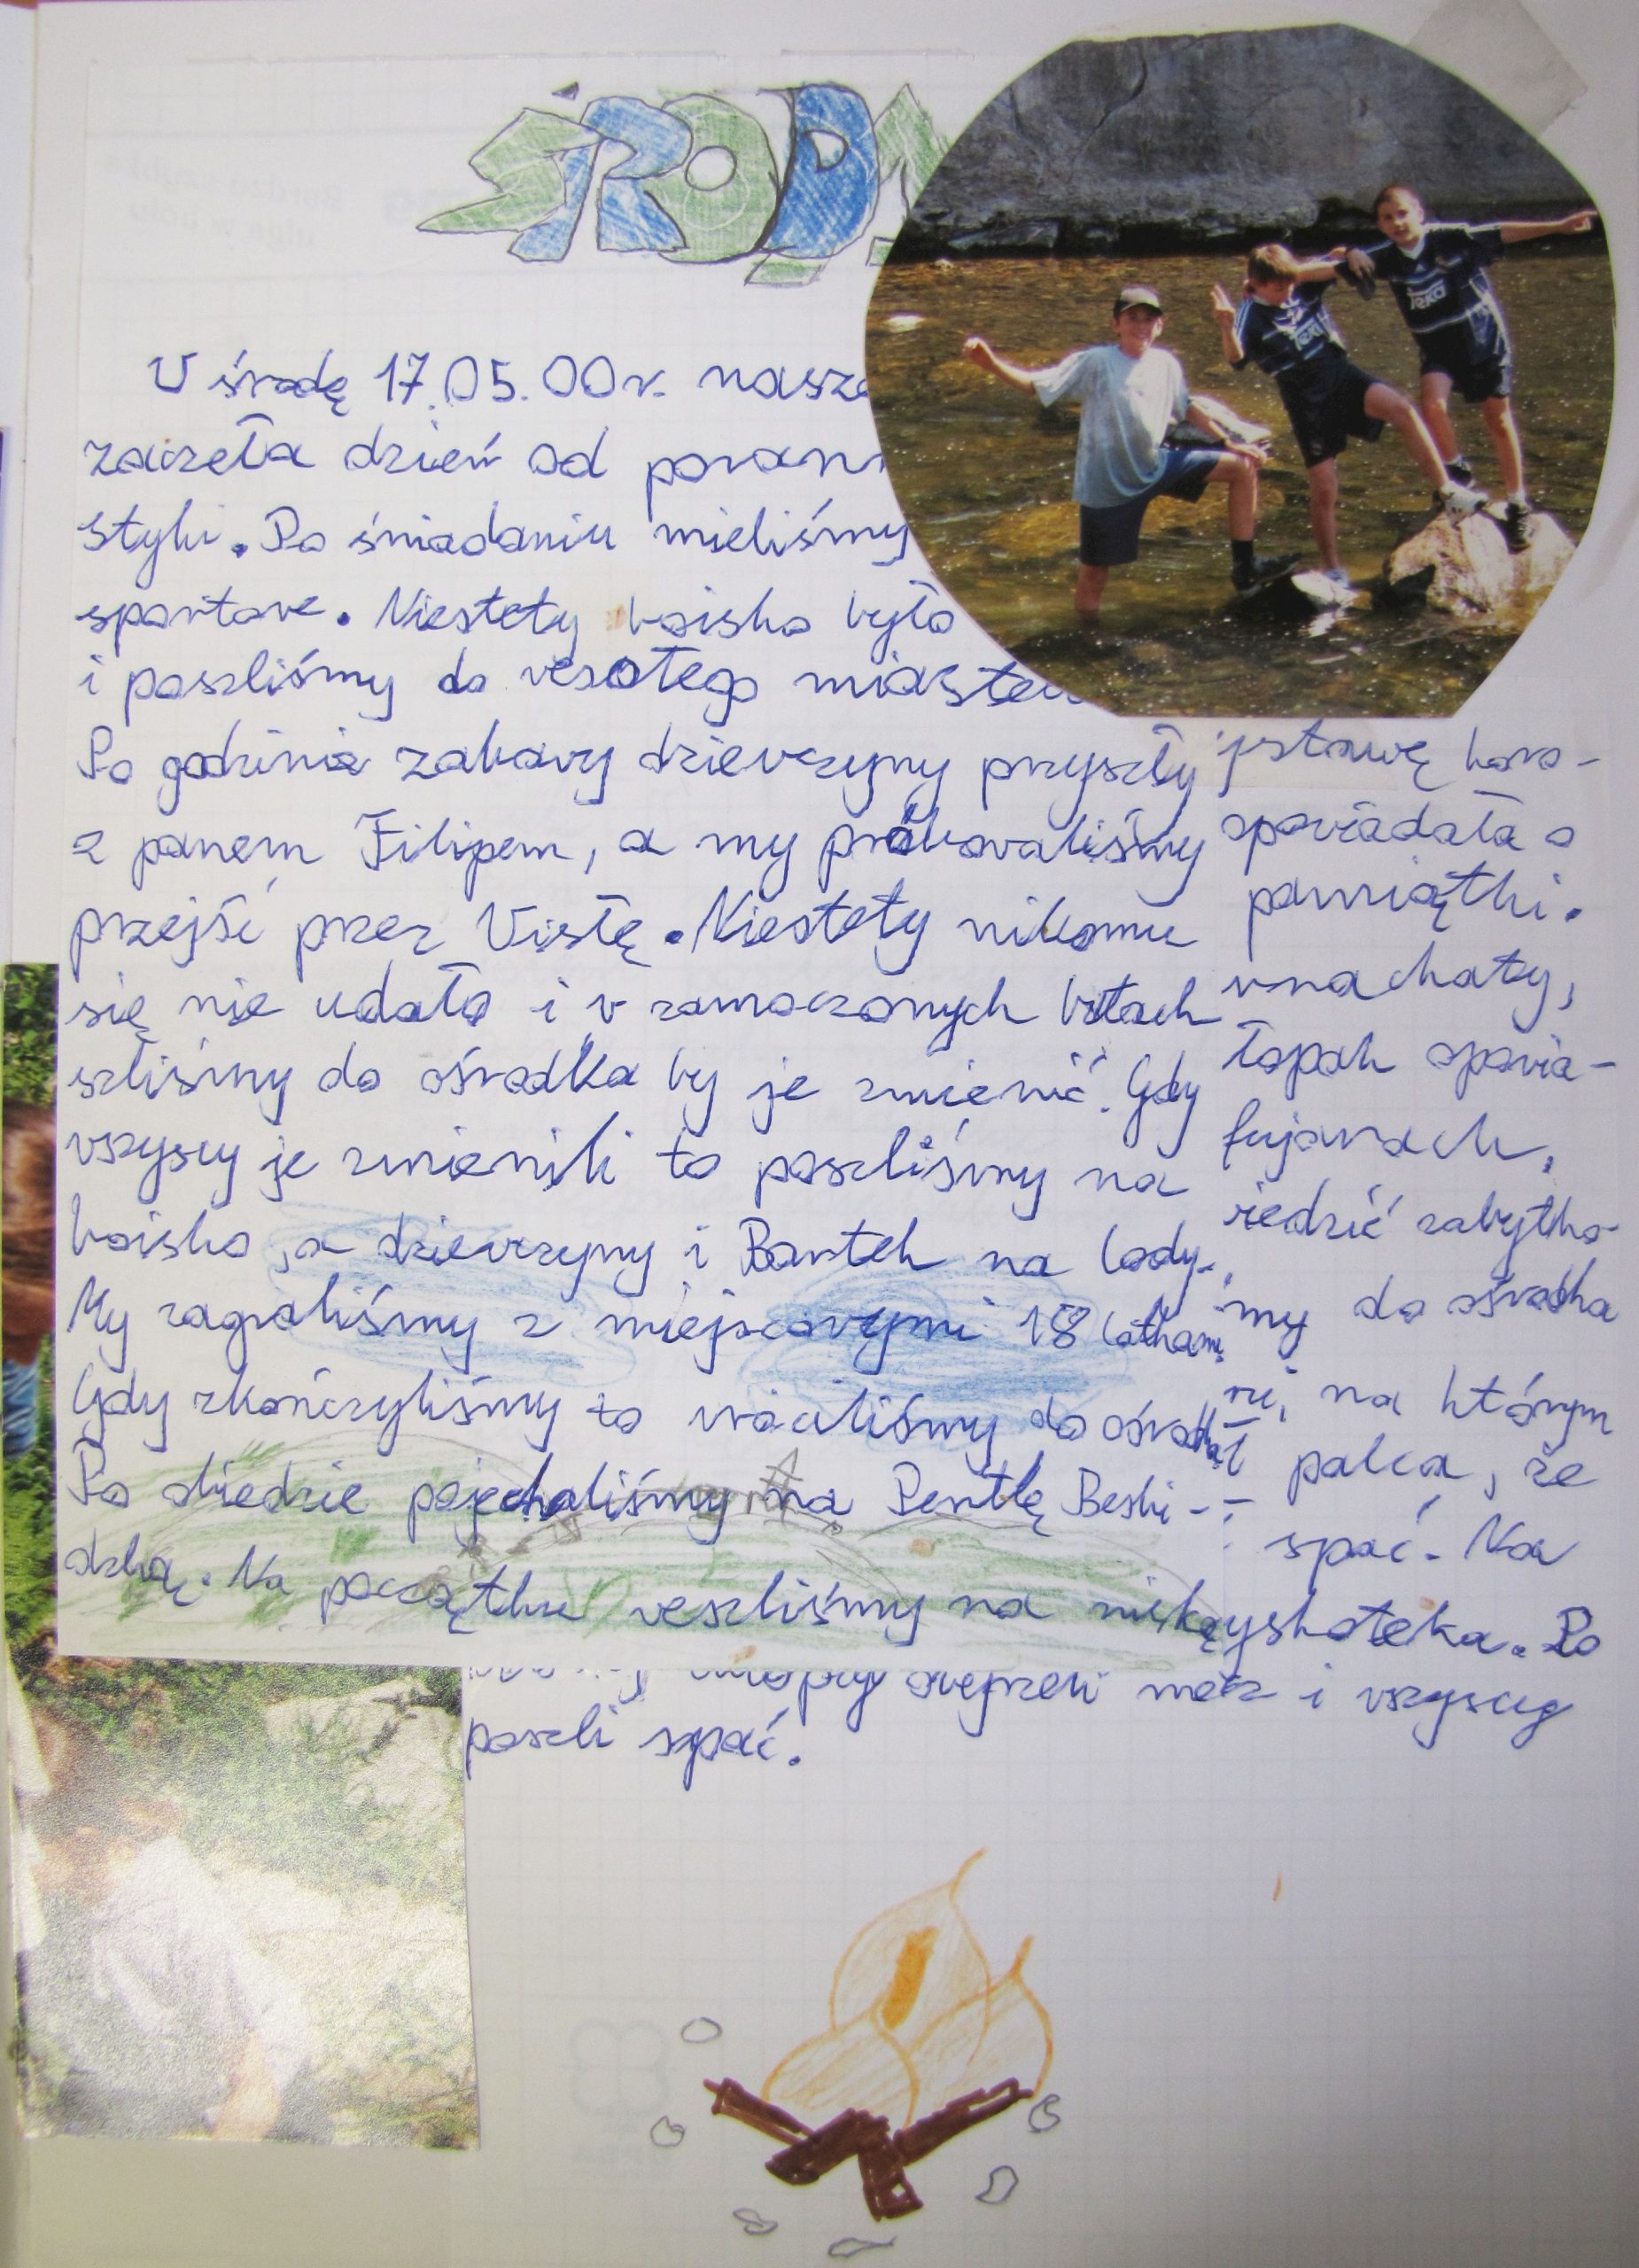 ŚROD
W środę 17.05.00r. nasza
zaczęła dzień od poran
styki. Po śniadaniu mieliśmy
sportowe. Niestety boisko było
i poszliśmy do wesołego miastecz
Po godzinie zabawy dziewczyny przyszły
z panem Filipem, a my próbowaliśmy
przejść przez Wisłę. Niestety nikomu
się nie udało i w zamoczonych butach
szliśmy do ośrodka by je zmienić. Gdy
wszyscy je zmienili to poszliśmy na
boisko, a dziewczyny i Bartek na lody.
My zagraliśmy z miejscowymi 18 latkami
Gdy zkończyliśmy to wróciliśmy do ośrodka
Po obiedzie pojechaliśmy na Pentlę Beski-
dzką. Na początku weszliśmy na niską
ystawę koro-
opowiadała o
pamiątki.
wnachaty,
łopak opowia-
fujarach.
iedzić zabytko-
my do ośrodka
na którym
palca, że
spać. Na
yskoteka. Po
mecz i wszyscy
poszli spać.